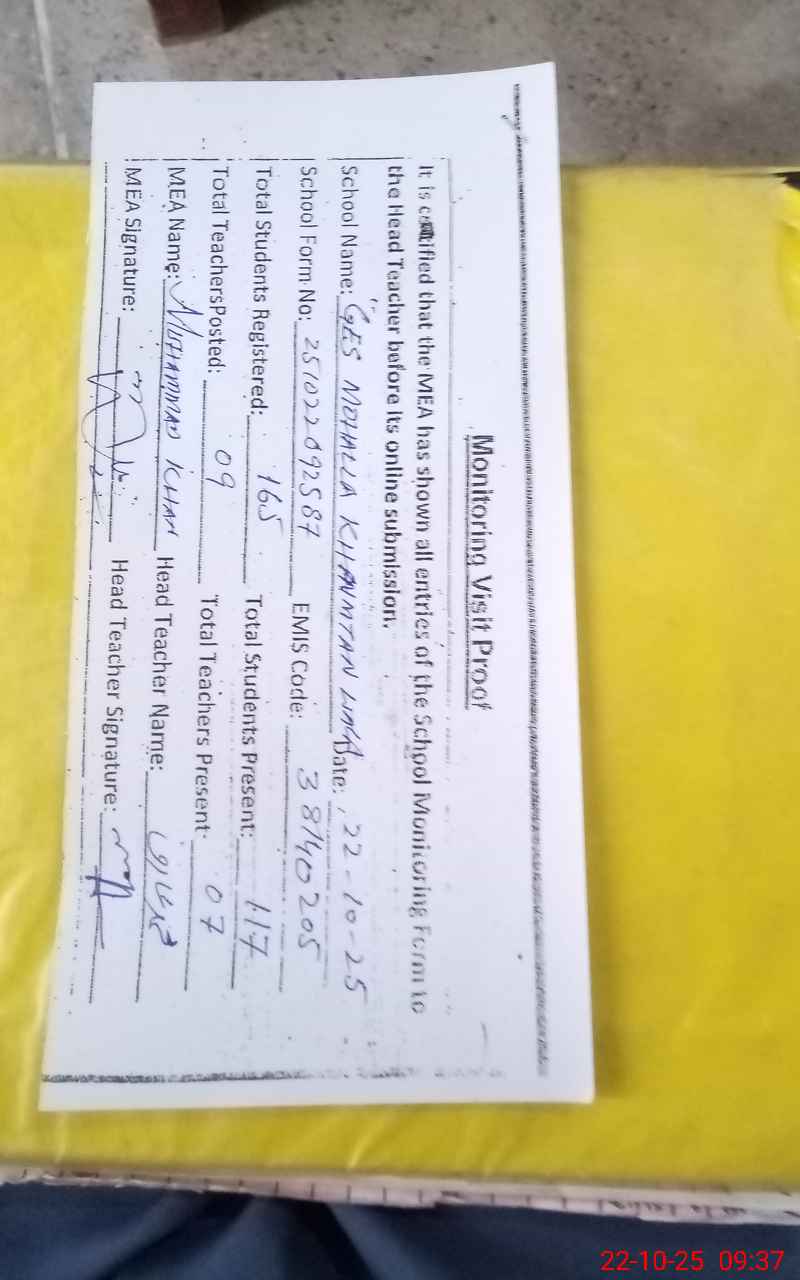 Monitoring Visit Proof
It is certified that the MEA has shown all entries of the School Monitoring Form to
the Head Teacher before its online submission.
School Name: GES MOHALLA KHANMTAN WALA Date: 22-10-25
School Form No: 251022092587 EMIS Code: 38140205
Total Students Registered: 165 Total Students Present: 117
Total TeachersPosted: 09 Total Teachers Present: 07
MEA Name: MUHAMMAD KHAN Head Teacher Name:
MEA Signature: Head Teacher Signature:
22-10-25 09:37